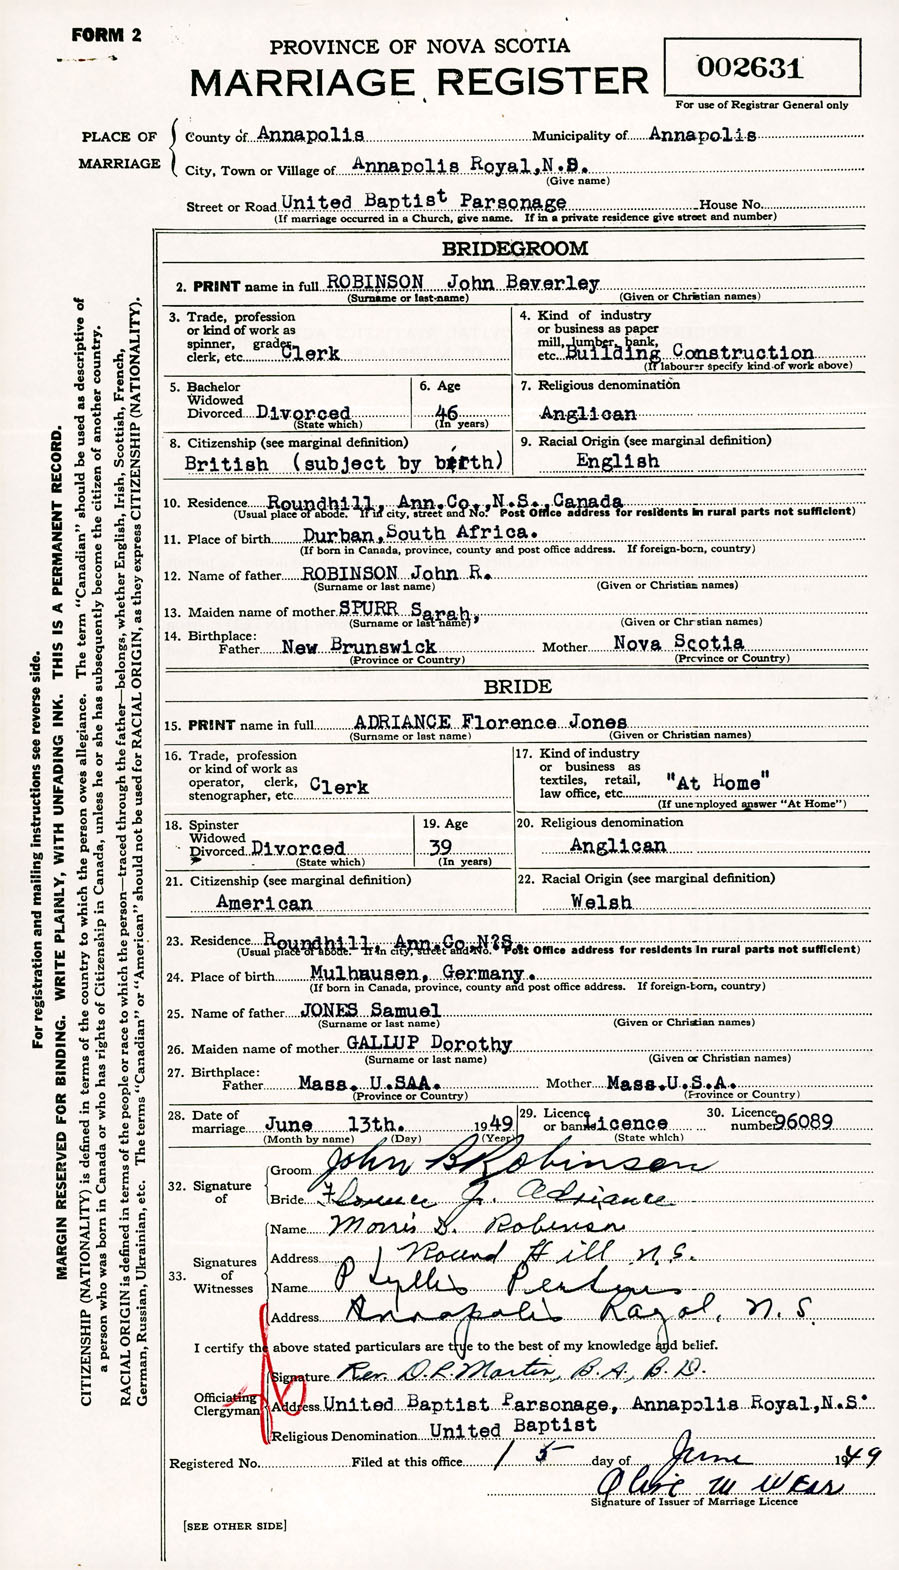 FORM 2
PROVINCE OF NOVA SCOTIA
MARRIAGE REGISTER
002631
For use of Registrar General only
PLACE OF MARRIAGE
County of Annapolis Municipality of Annapolis
City, Town or Village of Annapolis Royal,N.S.
(Give name)
Street or Road United Baptist Parsonage House No.
(If marriage occurred in a Church, give name. If in a private residence give street and number)
BRIDEGROOM
2. PRINT name in full ROBINSON John Beverley
(Surname or last name) (Given or Christian names)
3. Trade, profession or kind of work as spinner, grader, clerk, etc. Clerk
4. Kind of industry or business as paper mill, lumber, bank, etc. Building Construction
(If labourer specify kind of work above)
5. Bachelor Widowed Divorced Divorced
(State which)
6. Age 46
(In years)
7. Religious denomination
Anglican
8. Citizenship (see marginal definition)
British (subject by birth)
9. Racial Origin (see marginal definition)
English
10. Residence Roundhill, Ann.Co.,N.S.,Canada
(Usual place of abode. If in city, street and No. Post Office address for residents in rural parts not sufficient)
11. Place of birth Durban,South Africa.
(If born in Canada, province, county and post office address. If foreign-born, country)
12. Name of father ROBINSON John R.
(Surname or last name) (Given or Christian names)
13. Maiden name of mother SPURR Sarah,
(Surname or last name) (Given or Christian names)
14. Birthplace:
Father New Brunswick Mother Nova Scotia
(Province or Country) (Province or Country)
BRIDE
15. PRINT name in full ADRIANCE Florence Jones
(Surname or last name) (Given or Christian names)
16. Trade, profession or kind of work as operator, clerk, stenographer, etc. Clerk
17. Kind of industry or business as textiles, retail, law office, etc. "At Home"
(If unemployed answer "At Home")
18. Spinster Widowed Divorced Divorced
(State which)
19. Age 39
(In years)
20. Religious denomination
Anglican
21. Citizenship (see marginal definition)
American
22. Racial Origin (see marginal definition)
Welsh
23. Residence Roundhill, Ann.Co.N?S.
(Usual place of abode. If in city, street and No. Post Office address for residents in rural parts not sufficient)
24. Place of birth Mulhausen, Germany.
(If born in Canada, province, county and post office address. If foreign-born, country)
25. Name of father JONES Samuel
(Surname or last name) (Given or Christian names)
26. Maiden name of mother GALLUP Dorothy
(Surname or last name) (Given or Christian names)
27. Birthplace:
Father Mass. U.SAA. Mother Mass.U.S.A.
(Province or Country) (Province or Country)
28. Date of marriage June 13th. 1949
(Month by name) (Day) (Year)
29. Licence or banns Licence
(State which)
30. Licence number 96089
32. Signature of
Groom John B Robinson
Bride Florence J. Adriance
33. Signatures of Witnesses
Name Morris D. Robinson
Address Round Hill N.S.
Name Phyllis Perkins
Address Annapolis Royal, N.S.
I certify the above stated particulars are true to the best of my knowledge and belief.
Officiating Clergyman
Signature Rev. D.L. Martin, B.A., B.D.
Address United Baptist Parsonage, Annapolis Royal,N.S.
Religious Denomination United Baptist
Registered No. Filed at this office 15 day of June 1949
Olive M Weir
Signature of Issuer of Marriage Licence
[SEE OTHER SIDE]
For registration and mailing instructions see reverse side.
MARGIN RESERVED FOR BINDING. WRITE PLAINLY, WITH UNFADING INK. THIS IS A PERMANENT RECORD.
CITIZENSHIP (NATIONALITY) is defined in terms of the country to which the person owes allegiance. The term "Canadian" should be used as descriptive of
a person who was born in Canada or who has rights of Citizenship in Canada, unless he or she has subsequently become the citizen of another country.
RACIAL ORIGIN is defined in terms of the people or race to which the person—traced through the father—belongs, whether English, Irish, Scottish, French,
German, Russian, Ukrainian, etc. The terms "Canadian" or "American" should not be used for RACIAL ORIGIN, as they express CITIZENSHIP (NATIONALITY).